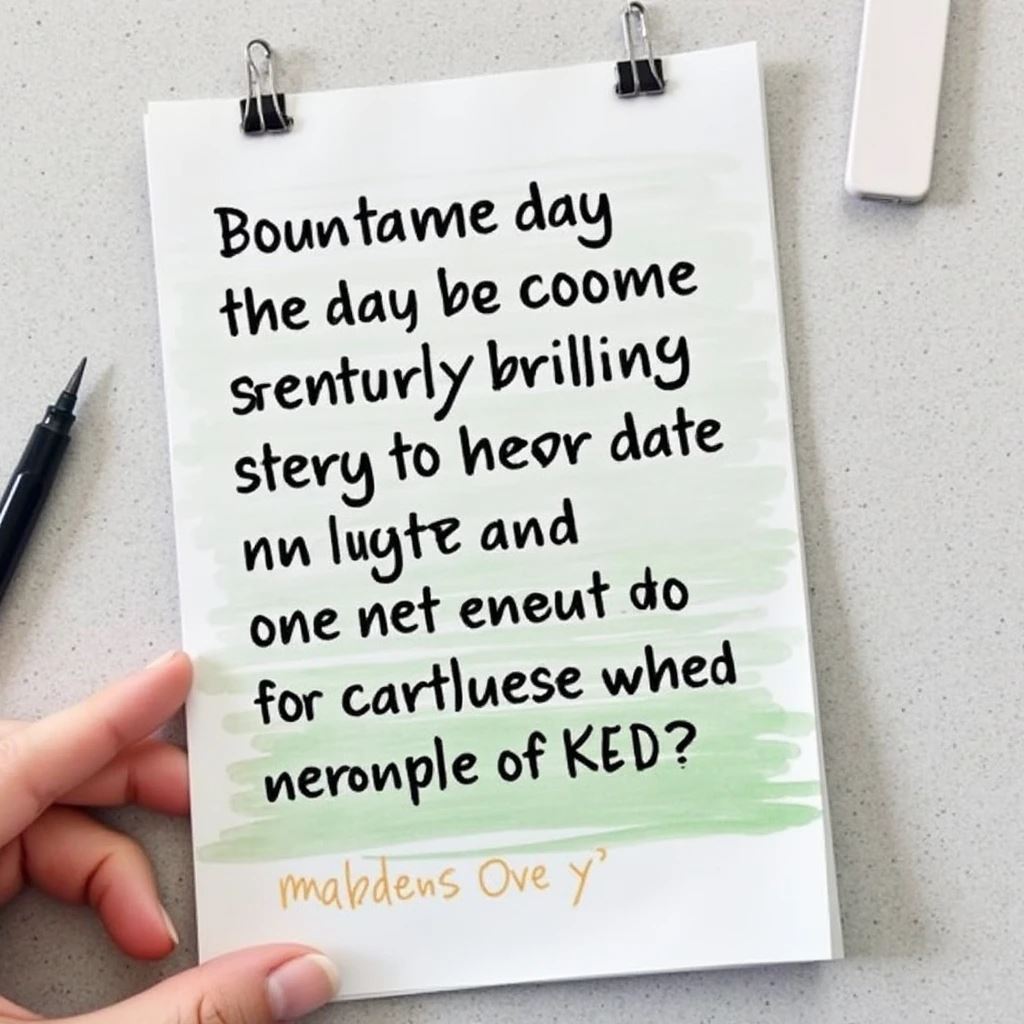 Bountame day
the day be coome
srenturly brilling
stery to heor date
nn lugte and
one net eneut do
for cartluese whed
neronple of KED?
mabdens Ove y'